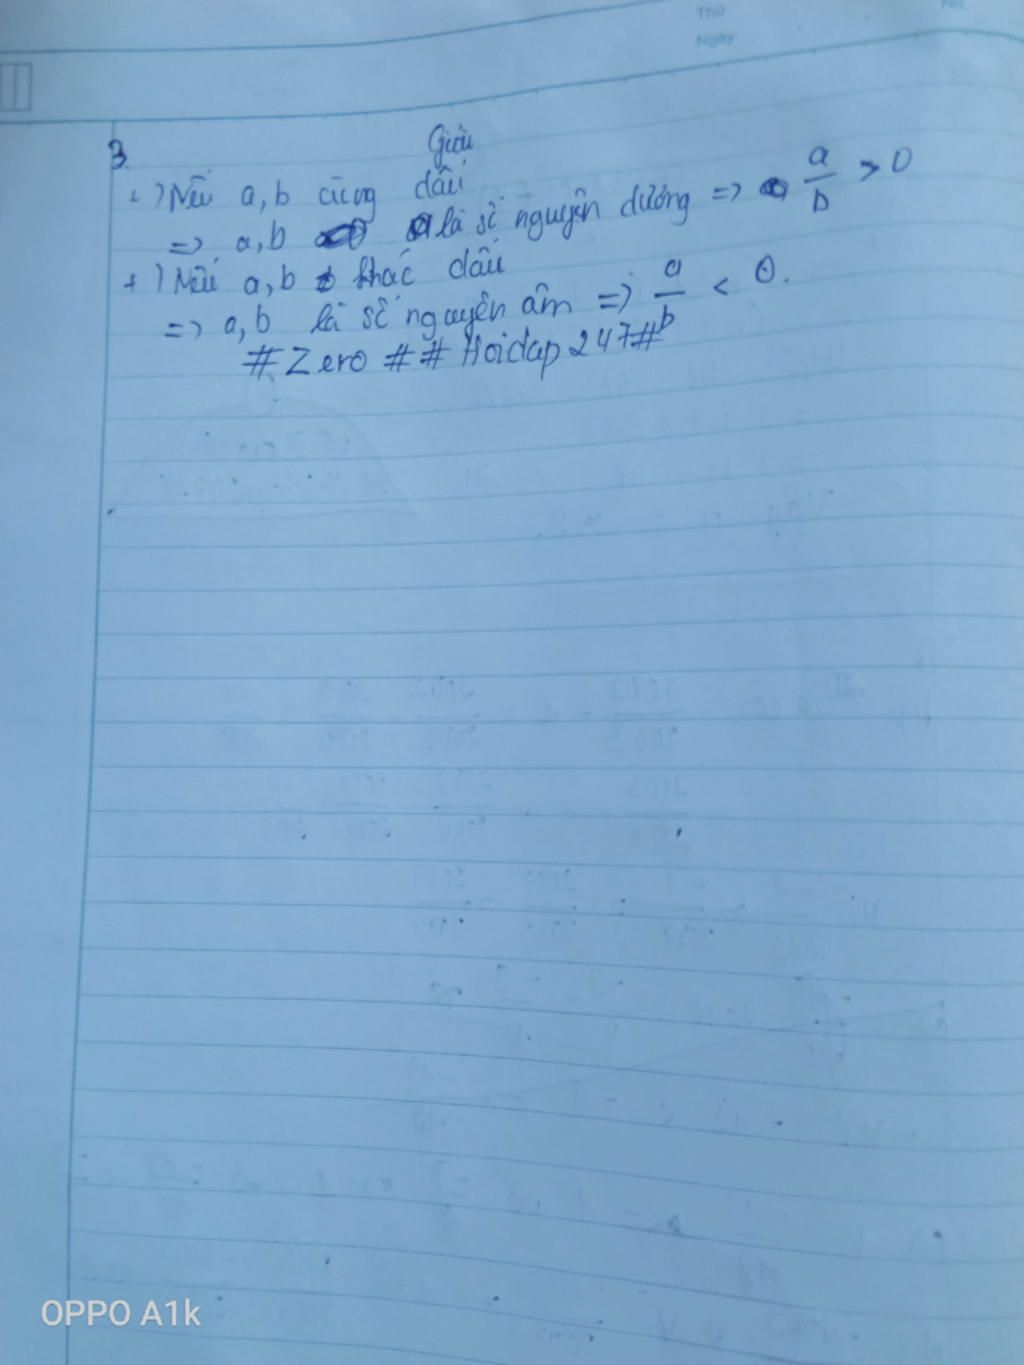 Thứ
Ngày
No.
3. Giải
+) Nếu a, b cùng dấu
=> a, b là số nguyên dương => a/b > 0
+) Nếu a, b khác dấu
=> a, b là số nguyên âm => a/b < 0.
#Zero ## Hoidap247#
OPPO A1k